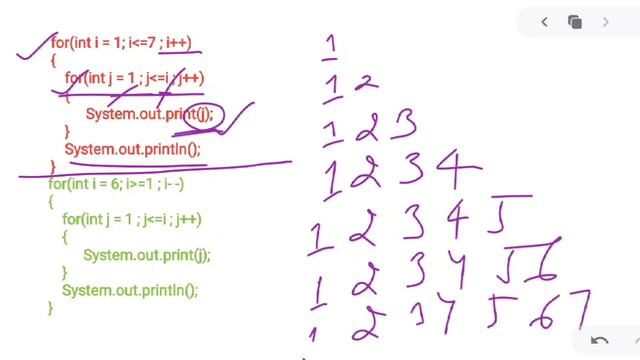 for(int i = 1; i<=7 ; i++)
{
for(int j = 1 ; j<=i ; j++)
{
System.out.print(j);
}
System.out.println();
}
for(int i = 6; i>=1 ; i- -)
{
for(int j = 1 ; j<=i ; j++)
{
System.out.print(j);
}
System.out.println();
}
1
1 2
1 2 3
1 2 3 4
1 2 3 4 5
1 2 3 4 5 6
1 2 3 4 5 6 7